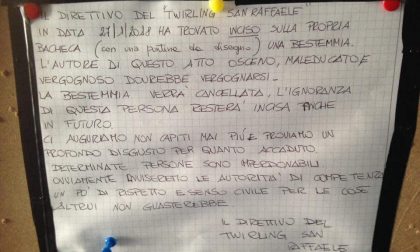 IL DIRETTIVO DEL "TWIRLING SAN RAFFAELE"
IN DATA 27/1/2018 HA TROVATO INCISO SULLA PROPRIA
BACHECA (con una puntina da disegno) UNA BESTEMMIA.
L'AUTORE DI QUESTO ATTO OSCENO, MALEDUCATO E
VERGOGNOSO DOVREBBE VERGOGNARSI.
LA BESTEMMIA VERRÀ CANCELLATA, L'IGNORANZA
DI QUESTA PERSONA RESTERÀ INCISA ANCHE
IN FUTURO.
CI AUGURIAMO NON CAPITI MAI PIÙ E PROVIAMO UN
PROFONDO DISGUSTO PER QUANTO ACCADUTO.
DETERMINATE PERSONE SONO IMPERDONABILI
OVVIAMENTE AVVISEREMO LE AUTORITÀ DI COMPETENZA
UN PO' DI RISPETTO E SENSO CIVILE PER LE COSE
ALTRUI NON GUASTEREBBE
IL DIRETTIVO DEL
TWIRLING SAN
RAFFAELE